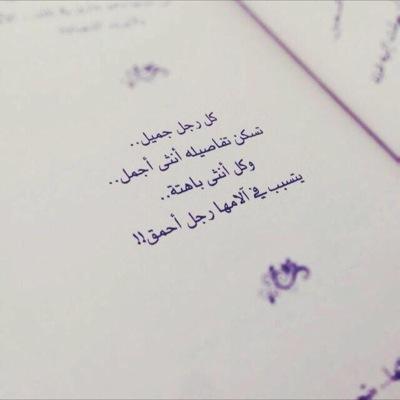 كل رجل جميل..
تسكن تفاصيله أنثى أجمل..
وكل أنثى باهتة..
يتسبب في آلامها رجل أحمق!!